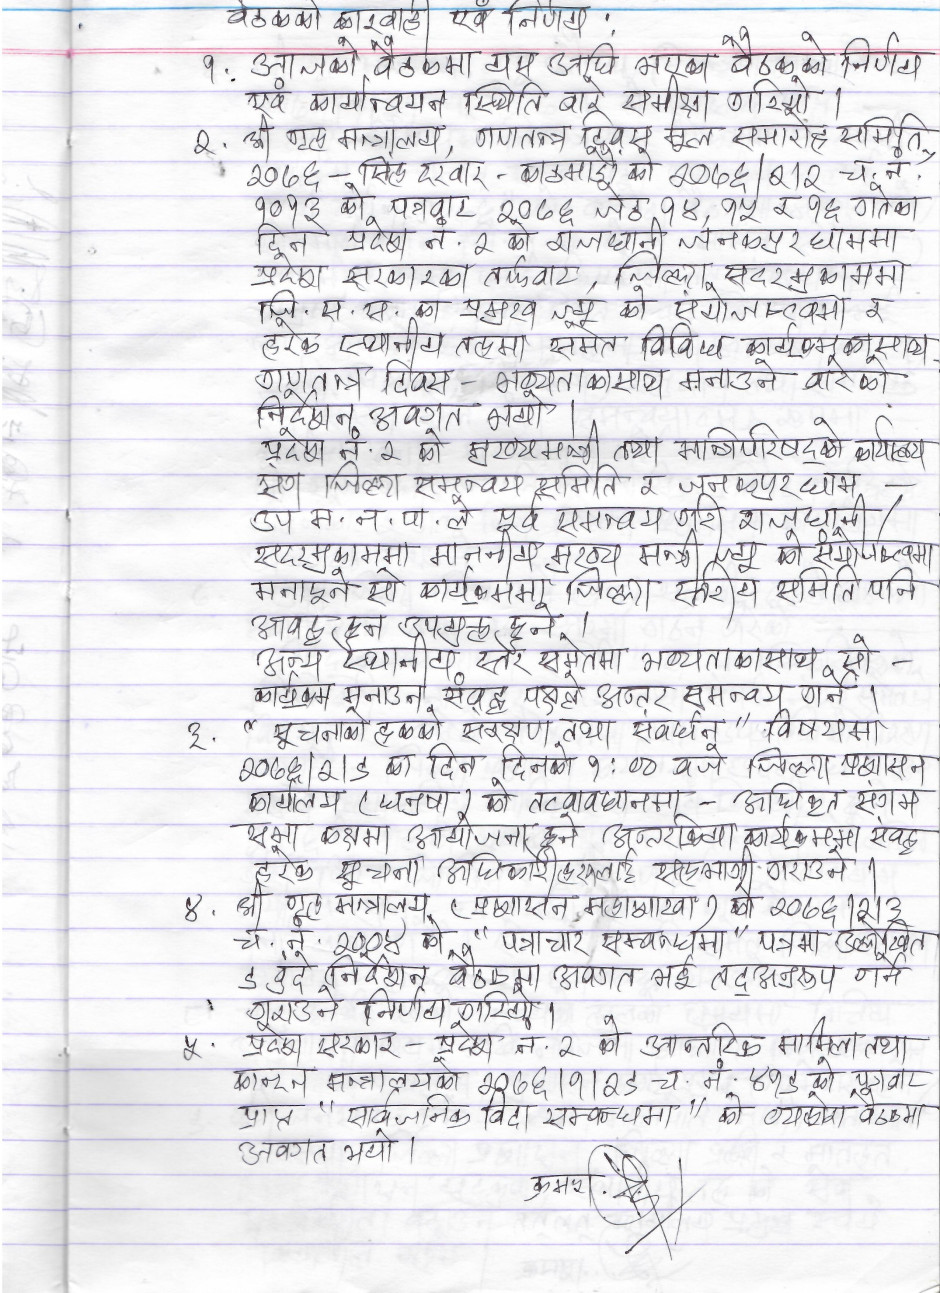 बैठकको कारवाही एवं निर्णय :
१. आजको बैठकमा यस अघि भएका बैठकको निर्णय
एवं कार्यान्वयन स्थिति वारे समीक्षा गरियो ।
२. श्री गृह मन्त्रालय, गणतन्त्र दिवस मूल समारोह समिति,
२०७६ - सिंह दरवार - काठमाडौं को २०७६/२१२ च. नं.
१०१३ को पत्रवाट २०७६ जेठ १४, १५ र १६ गतेका
दिन प्रदेश नं. २ को राजधानी जनकपुरधाममा
प्रदेश सरकारका तर्फवाट, जिल्ला सदरमुकाममा
जि. स. स. का प्रमुख ज्यू को संयोजकत्वमा र
हरेक स्थानीय तहमा समेत विविध कार्यक्रमकासाथ
गणतन्त्र दिवस - भव्यताकासाथ मनाउने वारेको
निर्देशन अवगत भयो ।
प्रदेश नं. २ को मुख्यमन्त्री तथा मन्त्रिपरिषद्को कार्यालय
संग जिल्ला समन्वय समिति र जनकपुरधाम -
उप म. न. पा. ले पूर्व समन्वय गरि राजधानी/
सदरमुकाममा माननीय मुख्य मन्त्री ज्यू को संयोजकत्वमा
मनाइने सो कार्यक्रममा जिल्ला स्तरीय समिति पनि
आवद्ध हुन उपयुक्त हुने ।
अन्य स्थानीय स्तर समेतमा भव्यताकासाथ सो -
कार्यक्रम मनाउन संवद्ध पक्षले अन्तर समन्वय गर्ने ।
३. "सुचनाको हकको संरक्षण तथा संवर्धन" विषयमा
२०७६/२/८ का दिन दिनको १:०० वजे जिल्ला प्रशासन
कार्यालय (धनुषा) को तत्वावधानमा - अधिकृत संगम
सभा कक्षमा आयोजना हुने अन्तरक्रिया कार्यक्रममा संवद्ध
हरेक सुचना अधिकारीहरुलाई सहभागी गराउने ।
४. श्री गृह मन्त्रालय, (प्रशासन महाशाखा) को २०७६/२/३
च. नं. २००४ को "पत्राचार सम्बन्धमा" पत्रमा उल्लेखित
८ वुंदे निर्देशन बैठकमा अवगत भई तद्अनुरूप गर्ने
गराउने निर्णय गरियो ।
५. प्रदेश सरकार प्रदेश नं. २ को आन्तरिक मामिला तथा
कानून मन्त्रालयको २०७६/१/२८ च. नं. ४१८ को पत्रवाट
प्राप्त "सार्वजनिक विदा सम्बन्धमा" को व्यहोरा बैठकमा
अवगत भयो ।
क्रमश: